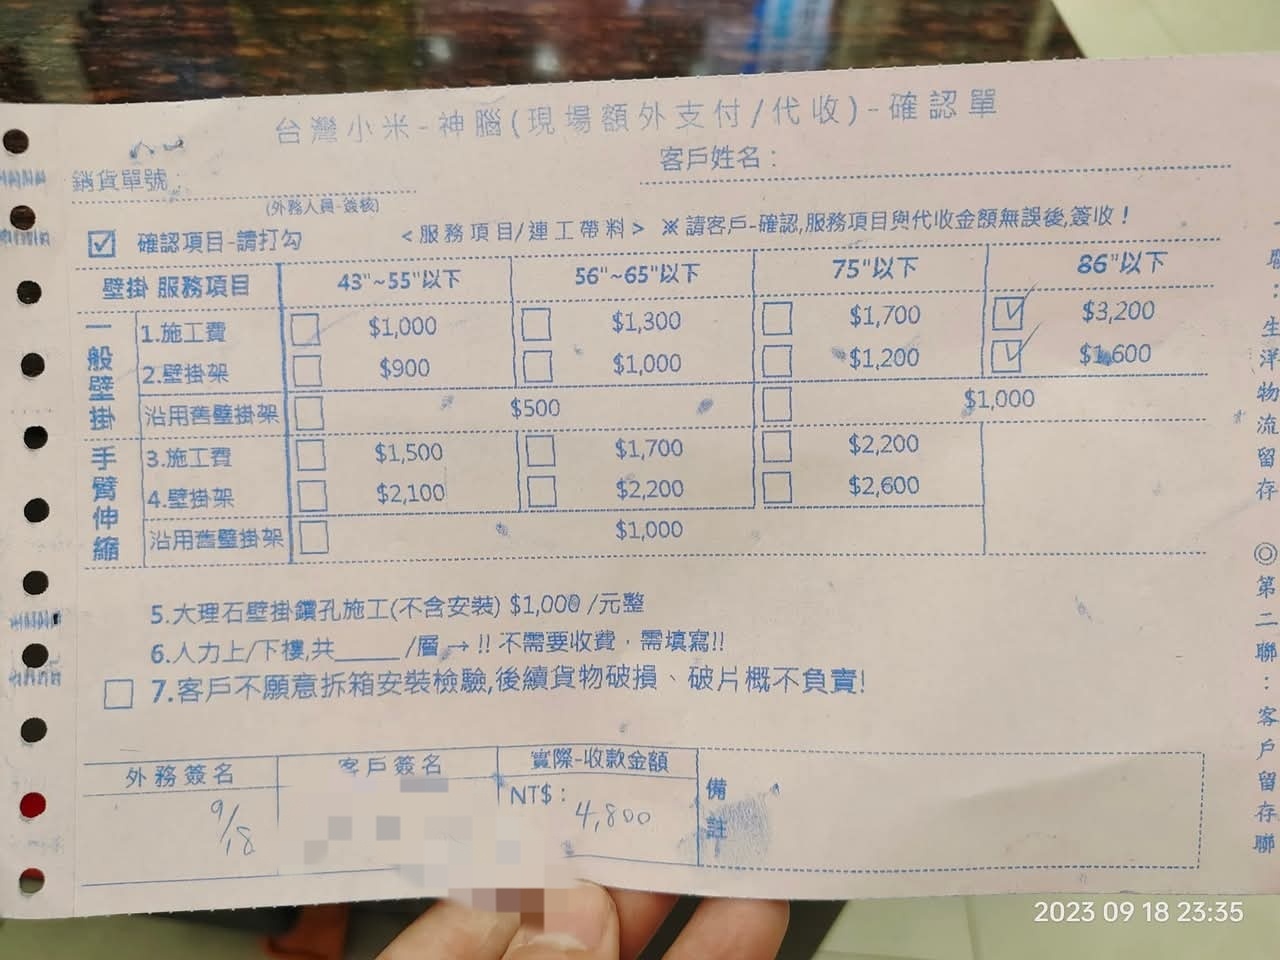 台灣小米-神腦(現場額外支付/代收)-確認單
銷貨單號:
客戶姓名:
(外務人員-簽核)
確認項目-請打勾 <服務項目/連工帶料> ※請客戶-確認,服務項目與代收金額無誤後,簽收!
壁掛 服務項目 43"~55"以下 56"~65"以下 75"以下 86"以下
一般壁掛
1.施工費 $1,000 $1,300 $1,700 $3,200
2.壁掛架 $900 $1,000 $1,200 $1,600
沿用舊壁掛架 $500 $1,000
手臂伸縮
3.施工費 $1,500 $1,700 $2,200
4.壁掛架 $2,100 $2,200 $2,600
沿用舊壁掛架 $1,000
5.大理石壁掛鑽孔施工(不含安裝) $1,000 /元整
6.人力上/下樓,共_____ /層 → !! 不需要收費,需填寫!!
7.客戶不願意拆箱安裝檢驗,後續貨物破損、破片概不負責!
外務簽名 客戶簽名 實際-收款金額 備註
9/18 NT$: 4,800
聯:生洋物流留存
◎第二聯:客戶留存聯
2023 09 18 23:35